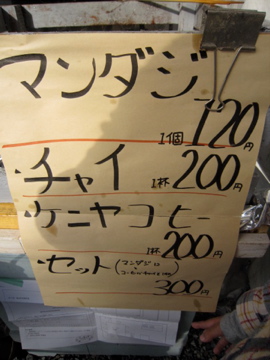 マンダジ
1個 120円
・チャイ 1杯 200円
・ケニヤコーヒー
1杯 200円
・セット(マンダジ
300円